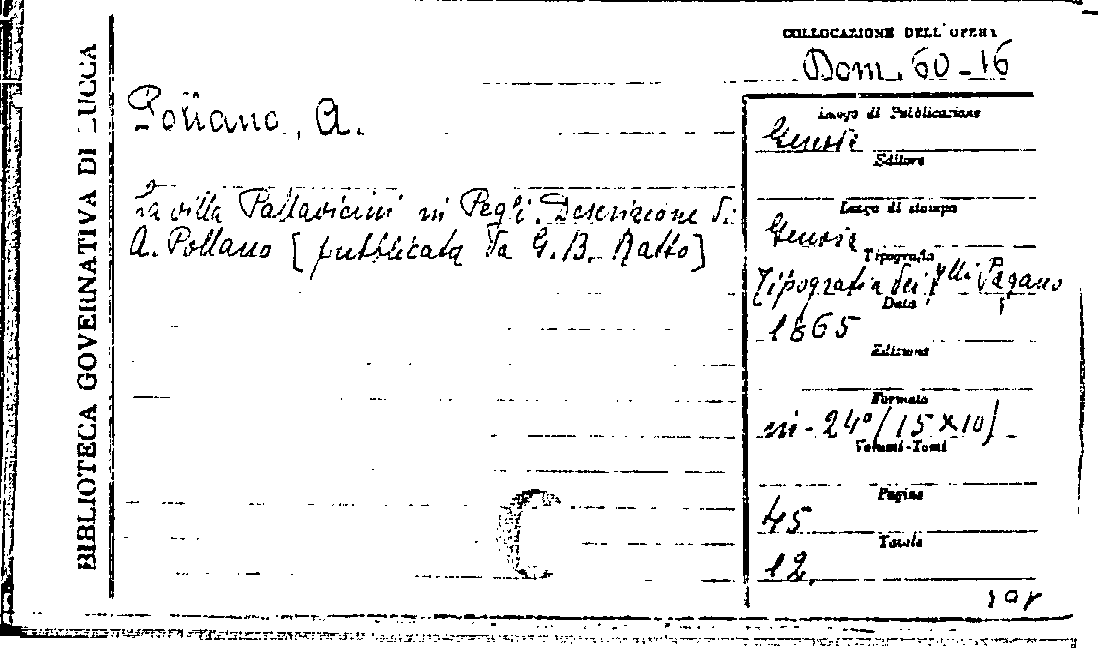 BIBLIOTECA GOVERNATIVA DI LUCCA
COLLOCAZIONE DELL'OPERA
Dom. 60-16
Pollano, A.
La villa Pallavicini in Pegli. Descrizione di
A. Pollano [pubblicata da G.B. Ratto]
Luogo di Pubblicazione
Genova
Editore
Luogo di stampa
Genova
Tipografo
Tipografia dei f.lli Pagano
Data
1865
Edizione
Formato
in-24° (15×10)
Volumi-Tomi
Pagine
45
Tavole
12.